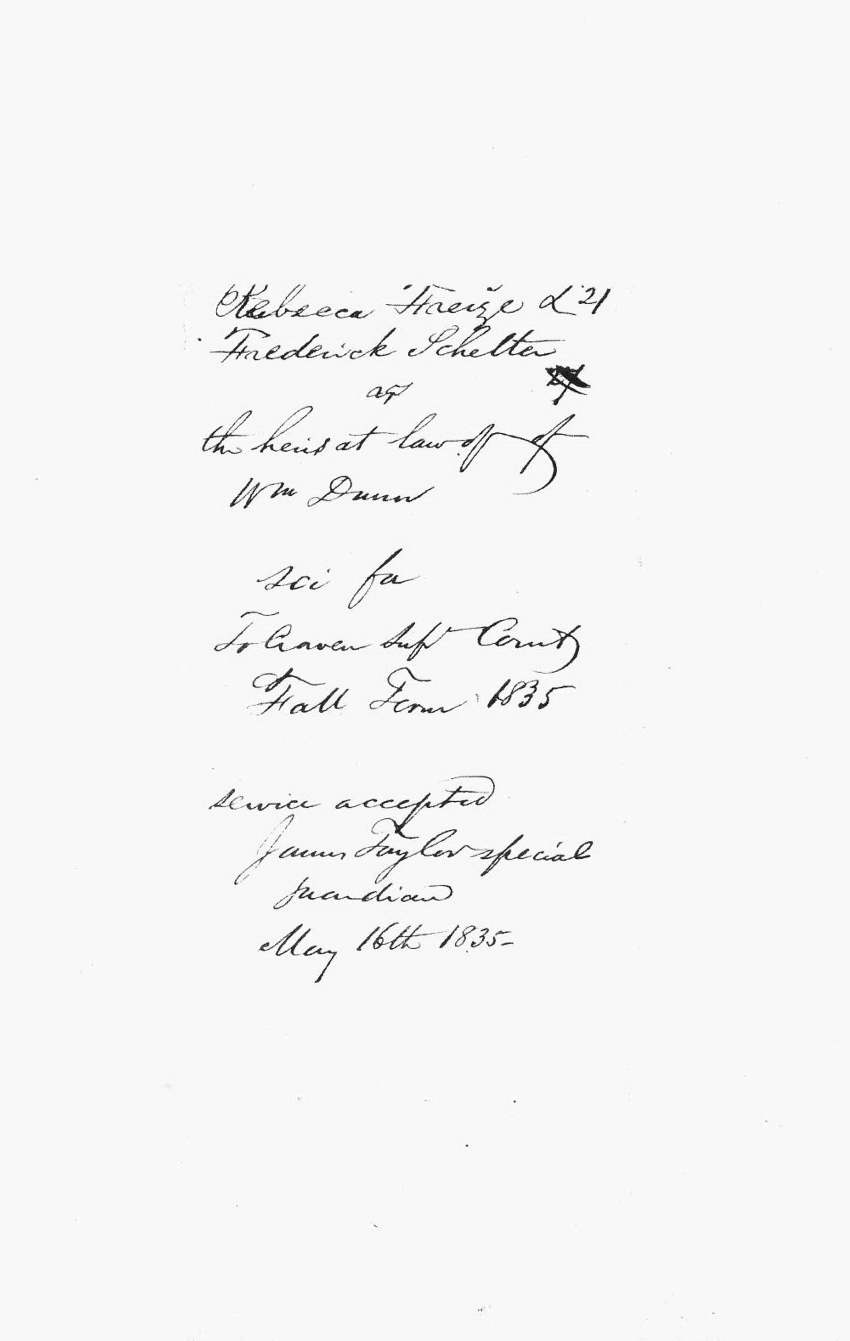 Rebseca Freize & 21
Frederick Schelter
agt
the heirs at law of of
Wm Dunn
sci fa
To Craven Supr Court
Fall Term 1835
service accepted
James Taylor special
guardian
May 16th 1835-